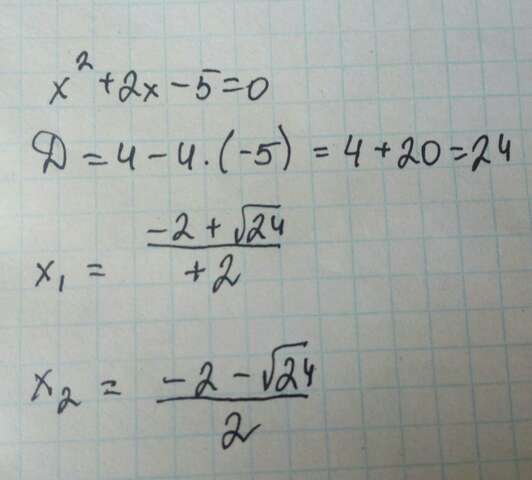 x² + 2x − 5 = 0
D = 4 − 4 · (−5) = 4 + 20 = 24
x₁ = (−2 + √24) / +2
x₂ = (−2 − √24) / 2